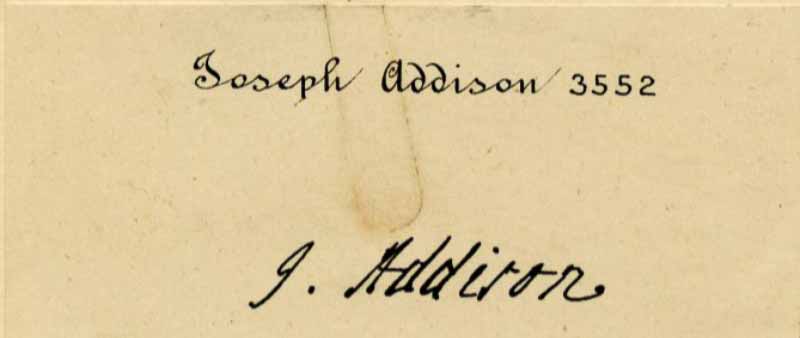 Joseph Addison 3552
J. Addison